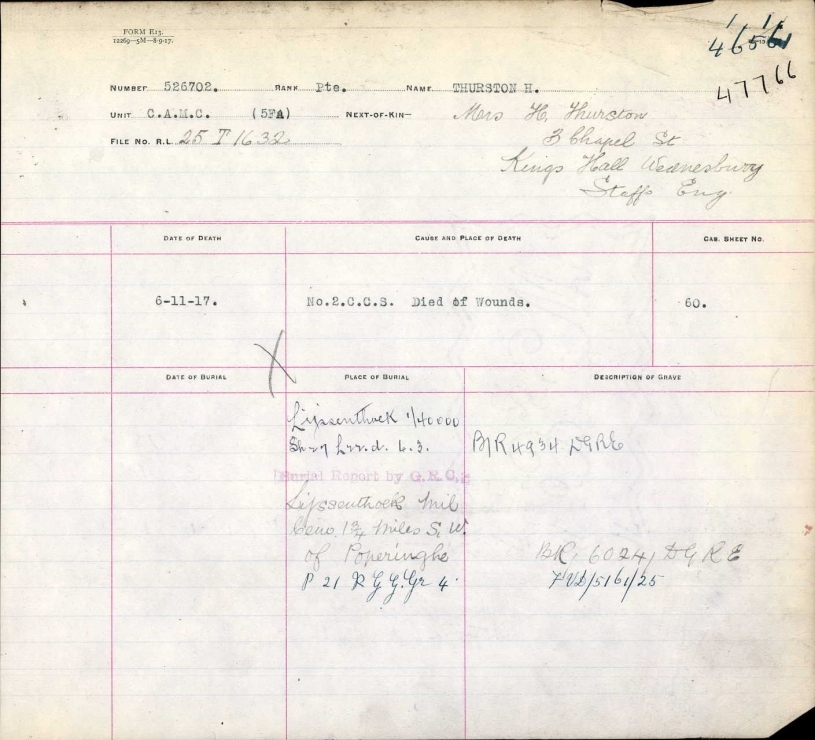 FORM E13.
12269—5M—8-9-17.
46561
47766
NUMBER 526702. RANK Pte. NAME THURSTON H.
UNIT C.A.M.C. (5FA) NEXT-OF-KIN— Mrs H. Thurston
3 Chapel St
FILE NO. R.L. 25 T 1632
Kings Hall Wednesbury
Staffs Eng.
DATE OF DEATH CAUSE AND PLACE OF DEATH CAS. SHEET NO.
6-11-17. No.2.C.C.S. Died of Wounds. 60.
DATE OF BURIAL PLACE OF BURIAL DESCRIPTION OF GRAVE
Lijssenthoek 1/40000
Sh 27 L22.d. 6.3. B/R 4934 DGRE
Burial Report by G.R.C.
Lijssenthoek Mil
Cem. 1¾ Miles S. W.
of Poperinghe BR. 6024, DGRE
P 21 R G G. Gr 4.